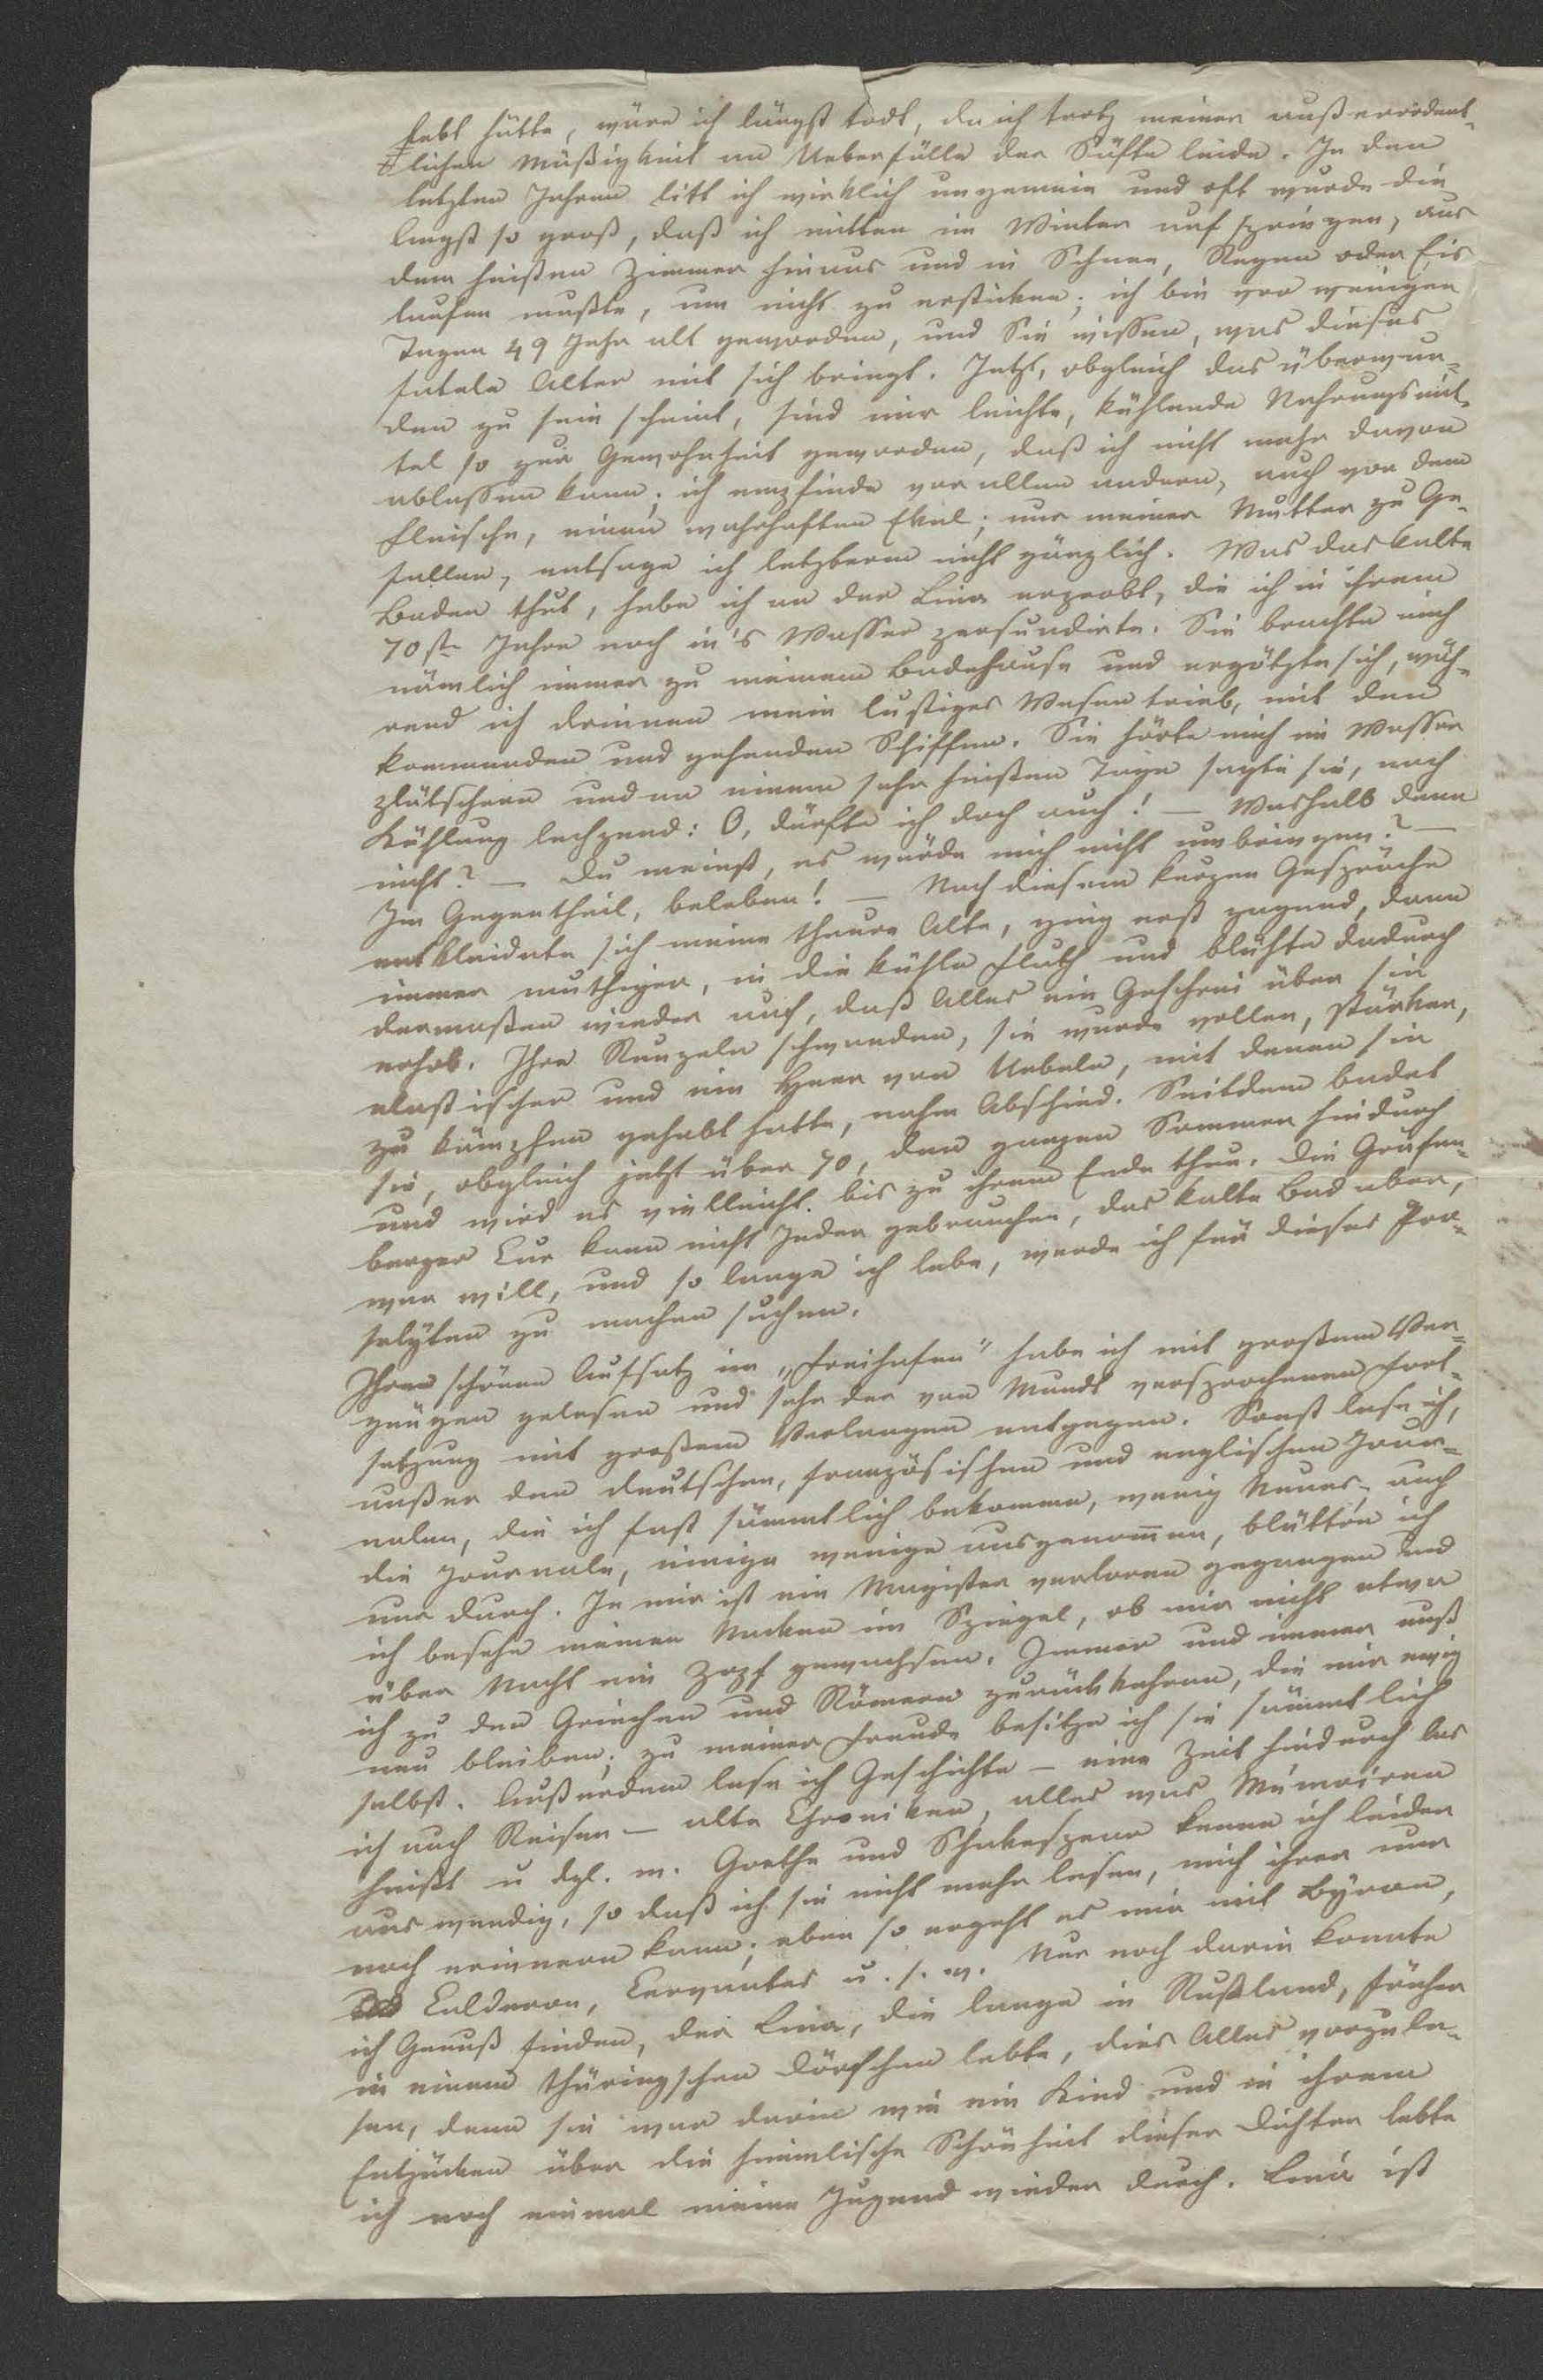 lebt hätte, wäre ich längst todt, da ich trotz meiner außerordent-
lichen Mäßigkeit an Ueberfülle der Säfte leide. In den
letzten Jahren litt ich wirklich ungemein und oft wurde die
Angst so groß, daß ich mitten im Winter aufspringen, aus
dem heißen Zimmer hinaus und in Schnee, Regen oder Eis
laufen mußte, um nicht zu ersticken; ich bin vor wenigen
Tagen 49 Jahr alt geworden, und Sie wissen, was dieses
fatale Alter mit sich bringt. Jetzt, obgleich das überwun-
den zu sein scheint, sind mir leichte, kühlende Nahrungsmit-
tel so zur Gewohnheit geworden, daß ich nicht mehr davon
ablassen kann; ich empfinde vor allen andern, auch vor dem
Fleische, einen wahrhaften Ekel; nur meiner Mutter zu Ge-
fallen, entsage ich letzterm nicht gänzlich. Was das kalte
Baden thut, habe ich an der Lina erprobt, die ich in ihrem
70st. Jahre noch in's Wasser persuadirte. Sie brachte mich
nämlich immer zu meinem Badehause und ergötzte sich, wäh-
rend ich drinnen mein lustiges Wesen trieb, mit den
kommenden und gehenden Schiffen. Sie hörte mich im Wasser
plätschern und an einem sehr heißen Tage sagte sie, nach
Kühlung lechzend: O, dürfte ich doch auch! — Weshalb denn
nicht? — Du meinst, es würde mich nicht umbringen? —
Im Gegentheil, beleben! — Nach diesem kurzen Gespräche
entkleidete sich meine theure Alte, ging erst zagend, dann
immer muthiger, in die kühle Fluth und blühte dadurch
dermaßen wieder auf, daß Alles ein Geschrei über sie
erhob. Ihre Runzeln schwanden, sie wurde voller, stärker,
elastischer und ein Heer von Uebeln, mit denen sie
zu kämpfen gehabt hatte, nahm Abschied. Seitdem badet
sie, obgleich jetzt über 70, den ganzen Sommer hindurch
und wird es vielleicht bis zu ihrem Ende thun. Die Gräfen-
berger Cur kann nicht Jeder gebrauchen, das kalte Bad aber,
wer will, und so lange ich lebe, werde ich für dieses Pro-
selyten zu machen suchen.
Ihren schönen Aufsatz im „Freihafen" habe ich mit großem Ver-
gnügen gelesen und sehe der von Mundt versprochenen Fort-
setzung mit großem Verlangen entgegen. Sonst lese ich,
außer den deutschen, französischen und englischen Jour-
nalen, die ich fast sämmtlich bekomme, wenig Neues; auch
die Journale, einige wenige ausgenommen, blättre ich
nur durch. In mir ist ein Magister verloren gegangen und
ich besehe meinen Nacken im Spiegel, ob mir nicht etwa
über Nacht ein Zopf gewachsen. Immer und immer muß
ich zu den Griechen und Römern zurückkehren, die mir ewig
neu bleiben; zu meiner Freude besitze ich sie sämmtlich
selbst. Außerdem lese ich Geschichte — eine Zeit hindurch las
ich auch Reisen — alte Chroniken, alles was Mémoiren
heißt u dgl. m. Goethe und Shakespeare kenne ich leider
auswendig, so daß ich sie nicht mehr lesen, mich ihrer nur
noch erinnern kann; eben so ergeht es mir mit Byron,
Calderon, Cervantes u. s. w. Nur noch darin konnte
ich Genuß finden, der Lina, die lange in Rußland, früher
in einem thüringschen Dörfchen lebte, dies Alles vorzule-
sen, denn sie war darin wie ein Kind und in ihrem
Entzücken über die himmlische Schönheit dieser Dichter lebte
ich noch einmal meine Jugend wieder durch. Lina ist